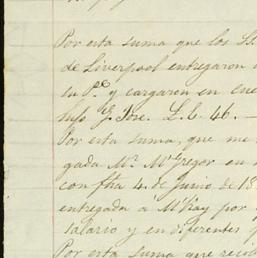 Por esta suma que los SS.
de Liverpool entregaron
tu Pe. y cargaron en cue
hijo J. José. L. C. 46. —
Por esta suma, que me
gada Mr. McGregor en
con fha 4 de Junio de 18
entregada a McKay por
salario y en diferentes
Por esta suma que reci